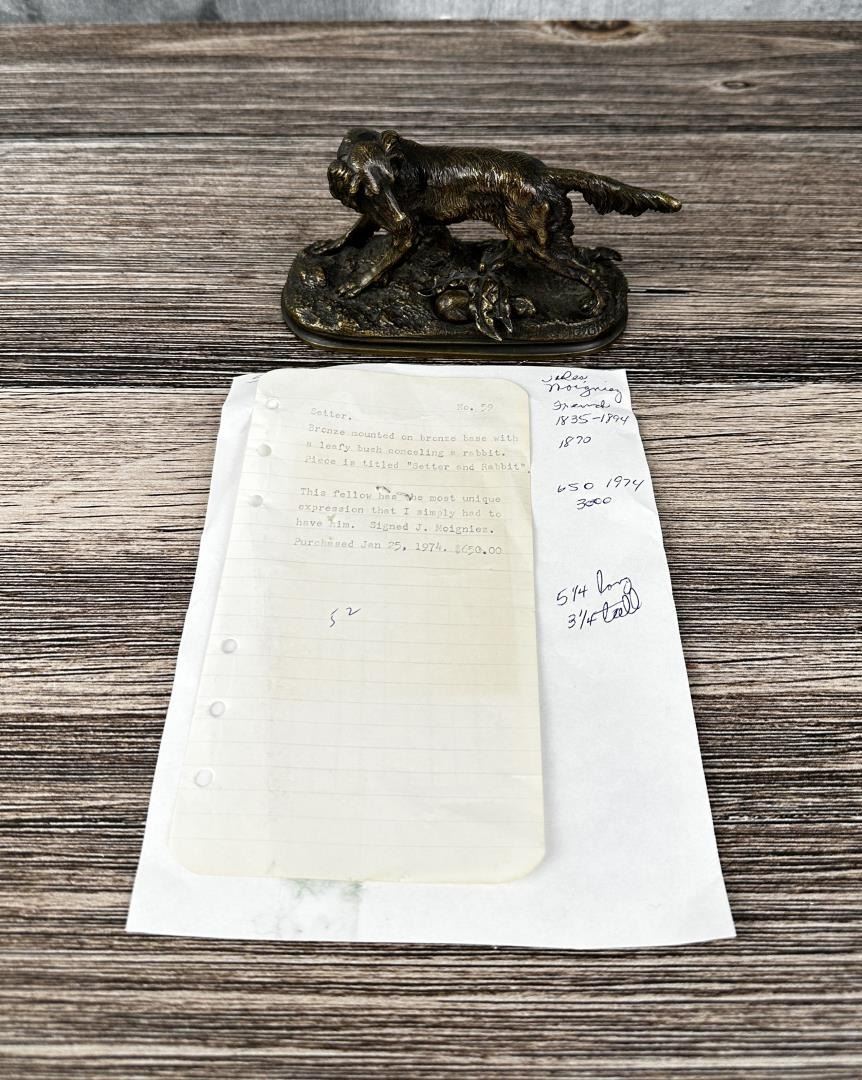 No. 59
Setter.
Bronze mounted on bronze base with
a leafy bush conceling a rabbit.
Piece is titled "Setter and Rabbit"
This fellow has the most unique
expression that I simply had to
have him. Signed J. Moigniez.
Purchased Jan 25, 1974. $650.00
52
Jules
Moigniez
1835-1894
1870
650 1974
3000
5 1/4 long
3 1/4 tall